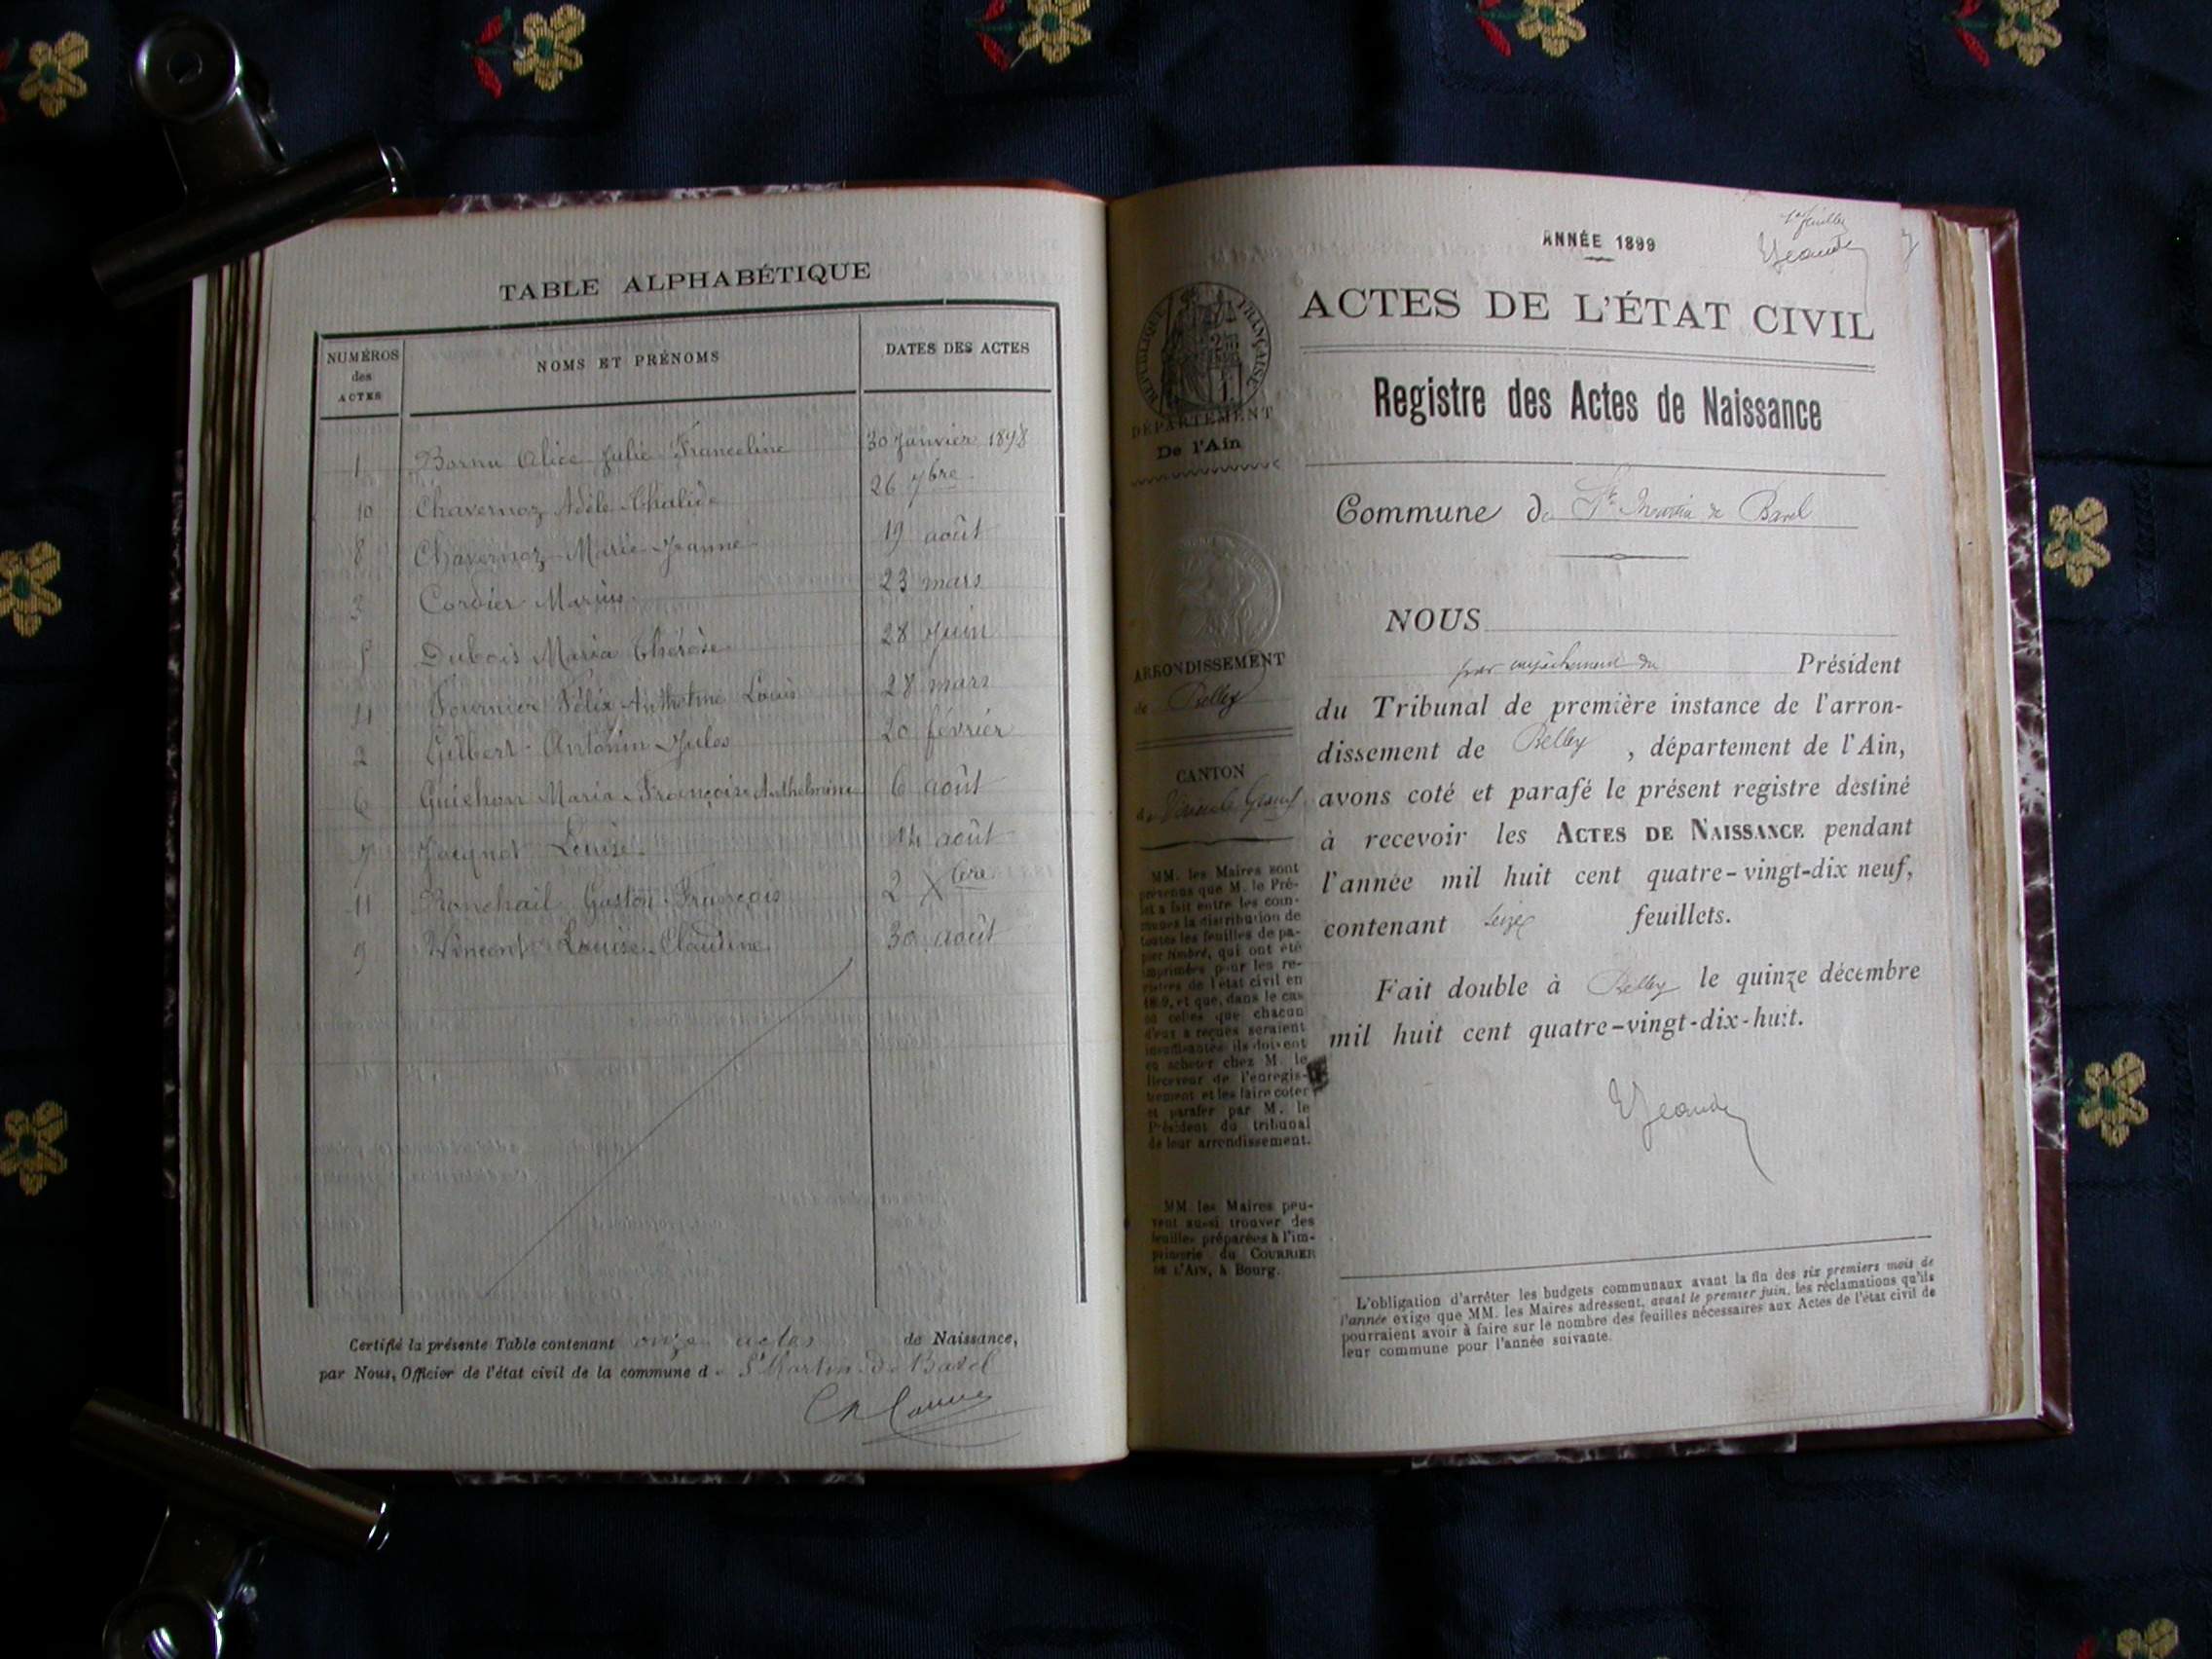 TABLE ALPHABÉTIQUE
NUMÉROS
des
ACTES
NOMS ET PRÉNOMS
DATES DES ACTES
1 Bornu Alice Julie Franceline 30 Janvier 1898
10 Chavernoz Adèle 26 7bre
8 Chavernoz Marie Jeanne 19 août
3 Cordier Marius 23 mars
5 Dubois Maria Thérèse 28 Juin
4 Fournier Félix Anthelme Louis 28 mars
2 Gilbert Antonin Jules 20 février
6 Guichon Maria Françoise Anthelmine 6 août
7 Jacquot Louise 14 août
11 Ronchail Gaston François 2 Xbre
9 Vincent Louise Claudine 30 août
Certifié la présente Table contenant onze actes de Naissance,
par Nous, Officier de l'état civil de la commune de St Martin de Bavel
ANNÉE 1899
7
ACTES DE L'ÉTAT CIVIL
RÉPUBLIQUE FRANÇAISE
DÉPARTEMENT
De l'Ain
Registre des Actes de Naissance
Commune de St Martin de Bavel
NOUS
par empêchement du Président
du Tribunal de première instance de l'arron-
dissement de Belley, département de l'Ain,
avons coté et parafé le présent registre destiné
à recevoir les ACTES DE NAISSANCE pendant
l'année mil huit cent quatre-vingt-dix neuf,
contenant seize feuillets.
Fait double à Belley le quinze décembre
mil huit cent quatre-vingt-dix-huit.
ARRONDISSEMENT
de Belley
CANTON
MM. les Maires sont
prévenus que M. le Pré-
fet a fait entre les com-
munes la distribution de
toutes les feuilles de pa-
pier timbré, qui ont été
imprimées pour les re-
gistres de l'état civil en
1899, et que, dans le cas
où celles que chacun
d'eux a reçues seraient
insuffisantes ils doivent
en acheter chez M. le
Receveur de l'enregis-
trement et les faire coter
et parafer par M. le
Président du tribunal
de leur arrondissement.
MM. les Maires peu-
vent aussi trouver des
feuilles préparées à l'im-
primerie du COURRIER
DE L'AIN, à Bourg.
L'obligation d'arrêter les budgets communaux avant la fin des six premiers mois de
l'année exige que MM. les Maires adressent, avant le premier juin, les réclamations qu'ils
pourraient avoir à faire sur le nombre des feuilles nécessaires aux Actes de l'état civil de
leur commune pour l'année suivante.